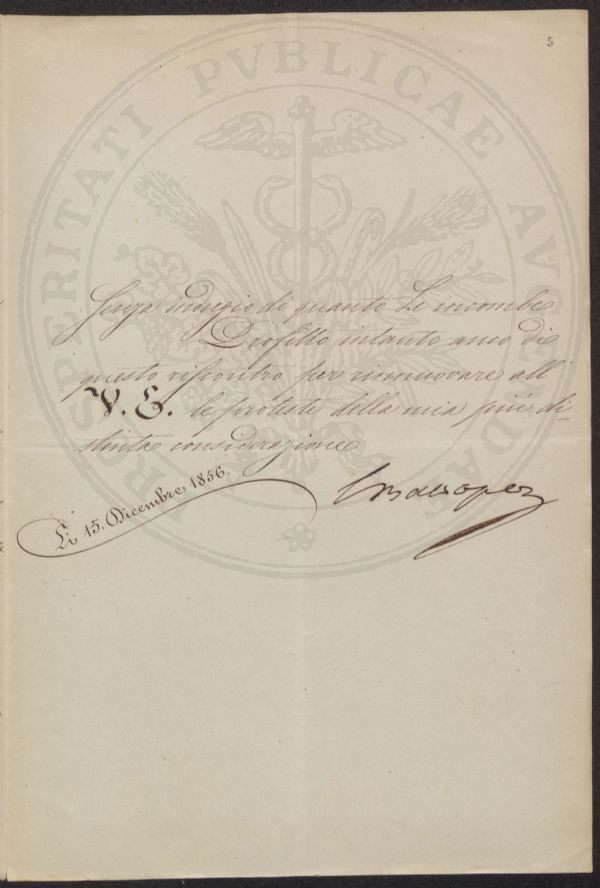 5
PROSPERITATI PVBLICAE AVGENDAE
Senza indugio di quanto Le incombe
Profitto intanto anco di
questo riscontro per rinnuovare all'
V. E. le proteste della mia più di-
stinta considerazione
Li 15. Dicembre 1856.